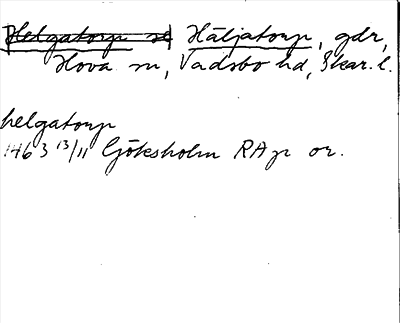 Helgatorp se Häljatorp, gdr,
Hova sn, Vadsbo hd, Skar. l.
helgatorp
1463 13/11 Göksholm RAp or.